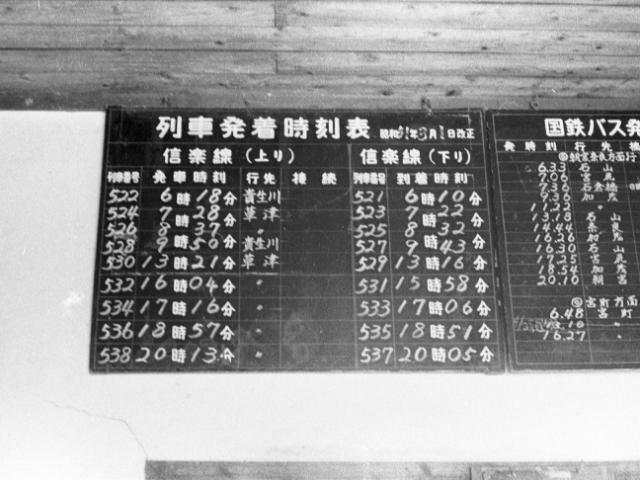 列車発着時刻表 昭和61年3月1日改正
信楽線（上り） 信楽線（下り）
列車番号 発車時刻 行先 接続 列車番号 到着時刻
522 6時18分 貴生川 521 6時10分
524 7時28分 草津 523 7時22分
526 8時37分 〃 525 8時32分
528 9時50分 貴生川 527 9時43分
530 13時21分 草津 529 13時16分
532 16時04分 〃 531 15時58分
534 17時16分 〃 533 17時06分
536 18時57分 〃 535 18時51分
538 20時13分 〃 537 20時05分
国鉄バス発
発時刻 行先
6.33 石山
7.06 宮尻
7.36 石倉橋
9.36 加茂
11.32 〃
13.18 石山
14.44 奈良
16.26 加茂
16.30 石山
17.25 宮尻
18.54 加茂
20.10 朝宮
宮町方面
6.48 宮町
16.27 〃